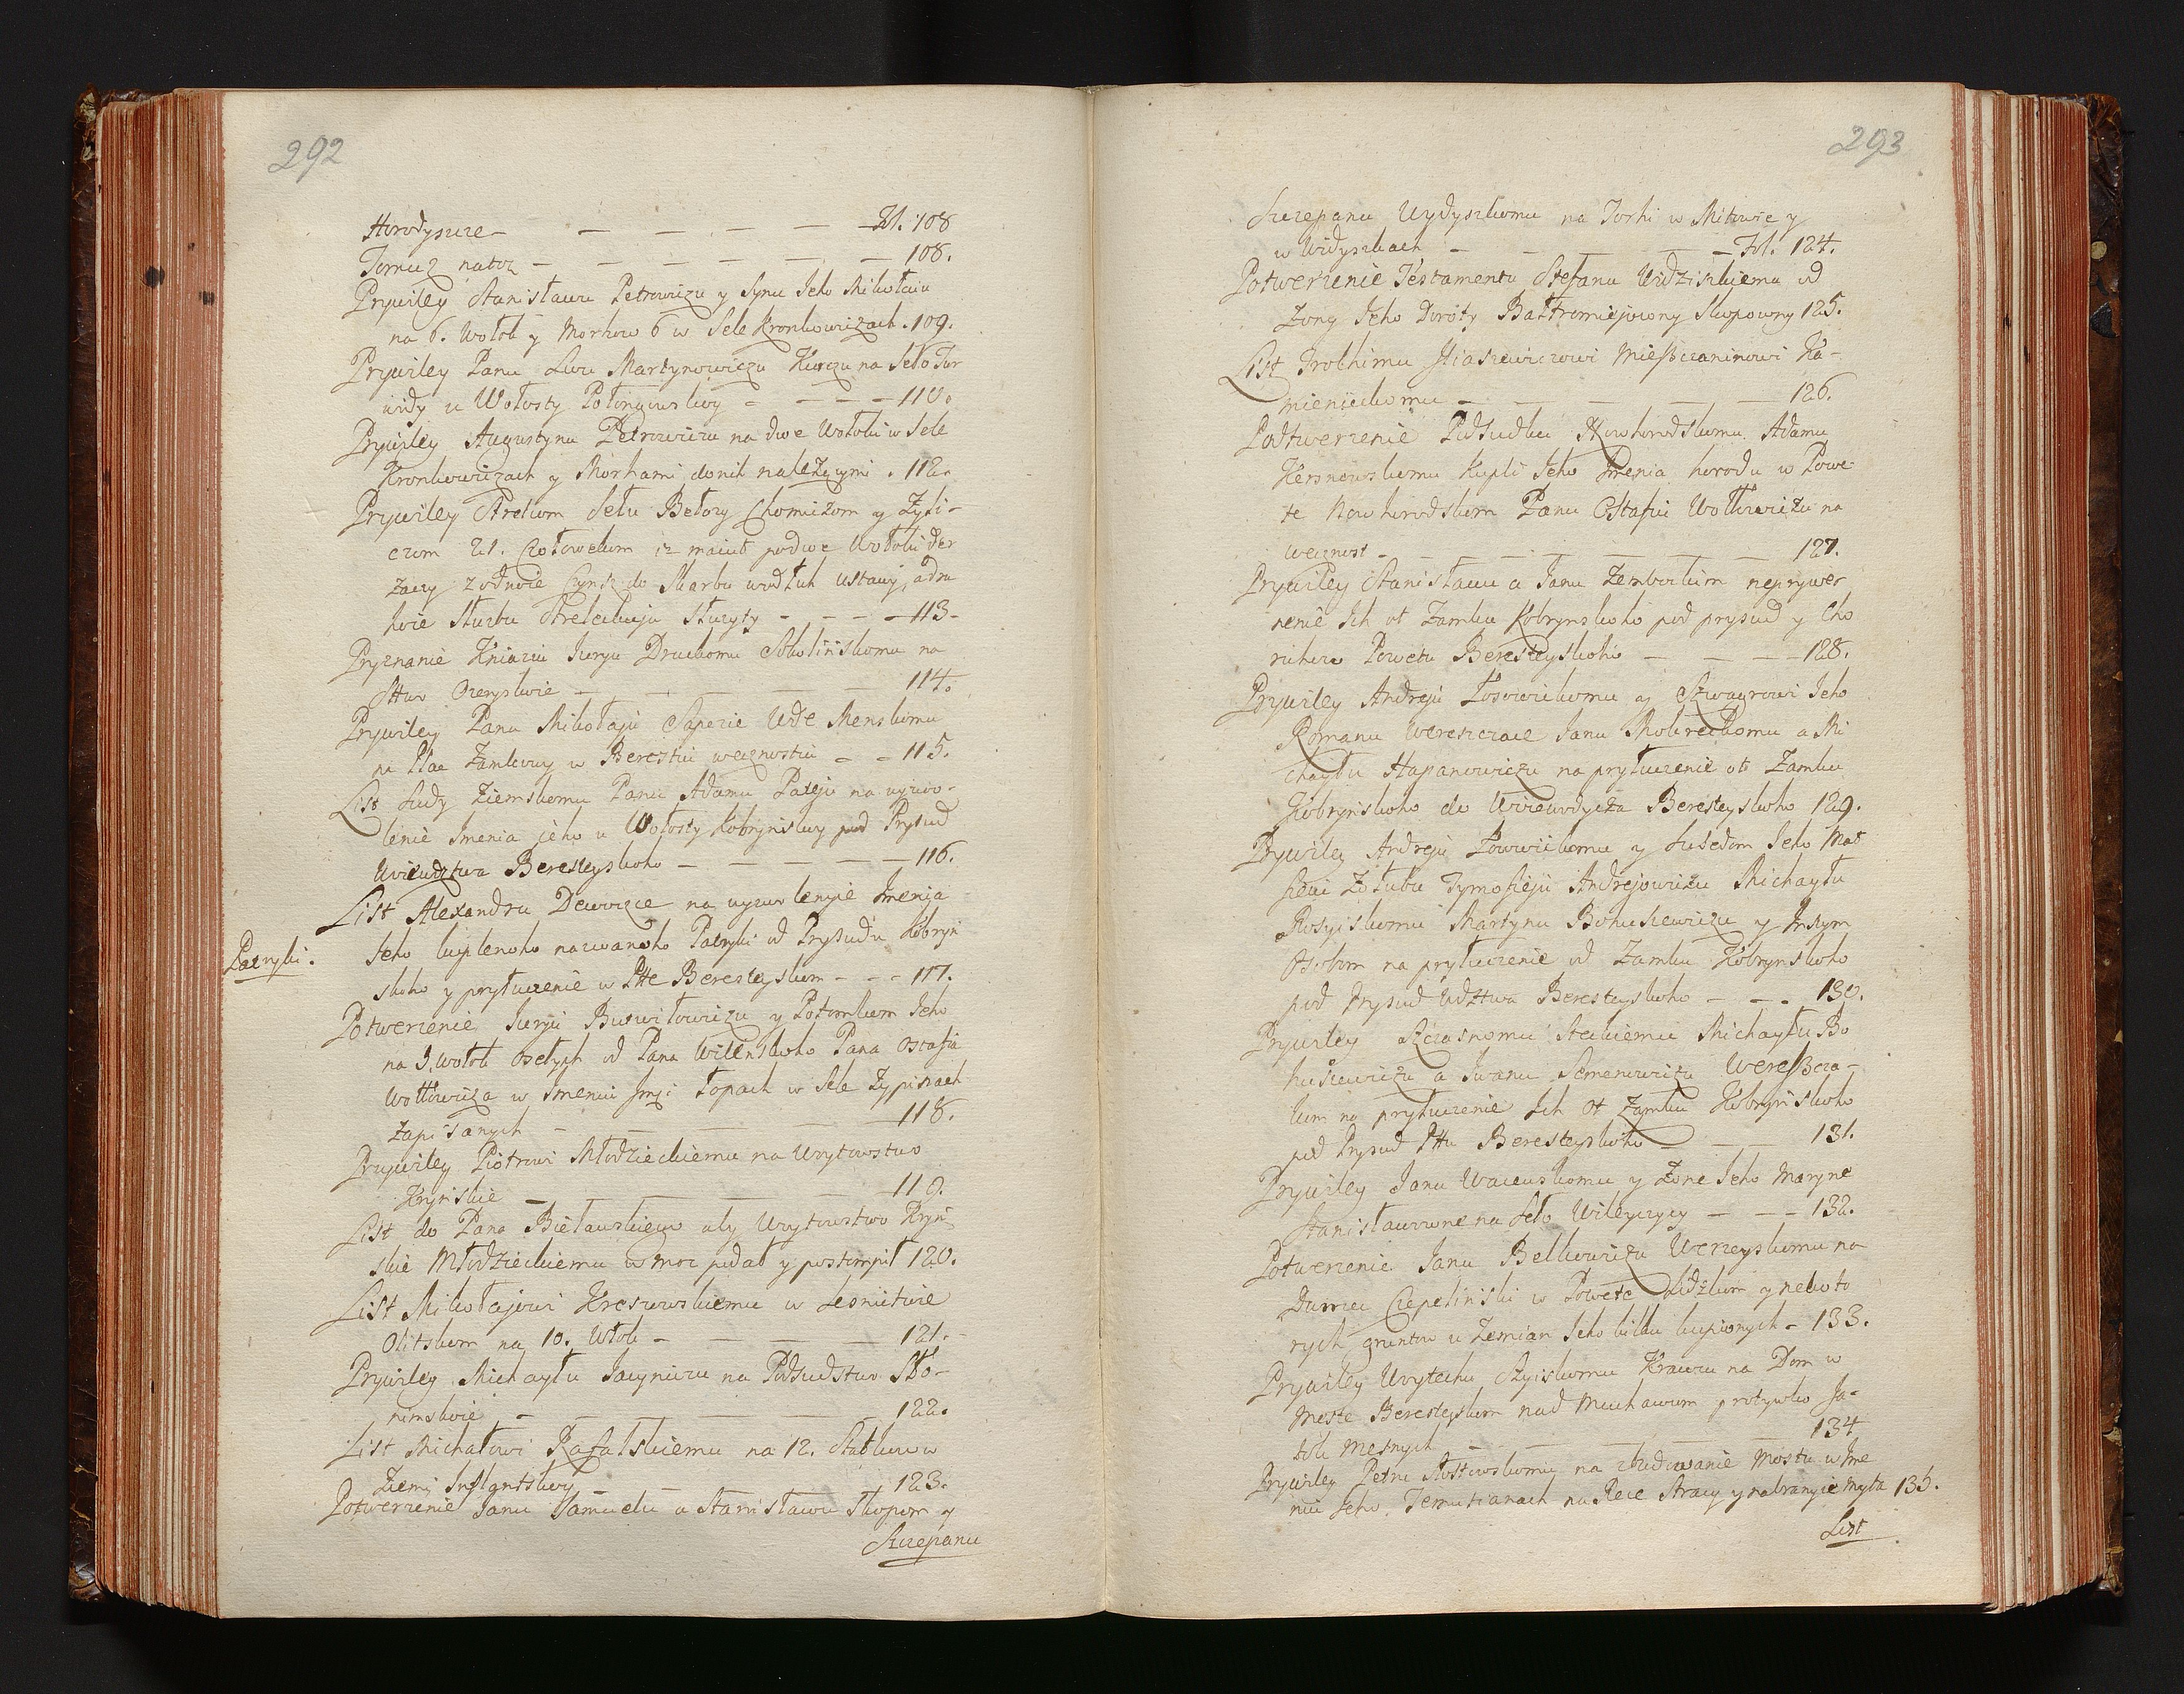 292
Horodyszcze — — — — — Fol. 108
Tomuż natoż — — — — — — 108.
Prywiley Stanisławu Petrowiczu y Synu Jeho Mikołaiu
na 6. Wołok y Morhow 6 w Sele Kronkowiczach. 109.
Prywiley Panu Lwu Martynowiczu Kurczu na Seło Tur
widy u Wołosty Połongowskoy - - - - 110.
Prywiley Augustynu Petrowiczu na dwe Wołoki w Sele
Kronkowiczach y Morhami do nich należącymi. 112.
Prywiley Strelcom Sełu Bełozy Chomiczom y Zyli-
czom 21. Człowekom iz maiut po dwe Wołoki der
żaczy z odnoie Czynsz do Skarbu wodłuh Ustawy, a dru
hoie służbu Strelcskuju służyty - - - - 113.
Pryznanie Kniaziu Juryu Druckomu Sokolińskomu na
Sttwo Ozeryskoie — — — — — 114.
Prywiley Panu Mikołaju Sapezie Wde Menskomu
na Plac Zamkowy w Berestiu wecznostiu - - 115.
List Sudy Ziemskomu Panu Adamu Pateju na wyzwo-
lenie Imenia jeho u Wołosty Kobrynskoy pod Prysud
Woiewdztwa Beresteyskoho — — — — — 116.
List Alexandru Dewoyce na wyzwolenyie Imenja
Jeho kuplenoho nazwanoho Patryki od Prysudu Kobryn
Patryki.
skoho y pryłuczenie w Ptte Beresteyskom - - - 117.
Potwerzenie Juryu Burwiłowiczu y Potomkom Jeho
na 3. wołok osełych od Pana Wilenskoho Pana Ostafia
Wołłowicza w Imeniu Jmć Łopach w Sele Zypiszach
Zapisanych — — — — — 118.
Prywiley Piotrowi Młodzieckiemu na Woytowstwo
Kryńskie — — — — 119.
List do Pana Bieławskiego aby Woytowstwo Kryń
skie Młodzieckiemu w moc podał y postompił 120.
List Mikołajowi Kreszewskiemu w Lesnictwie
Olitskom na 10. Włok — — — — 121.
Prywiley Michayłu Jacyniczu na Podsudstwo Sło-
nimskoie — — — — 122.
List Michałowi Rafalskiemu na 12. Statkow w
Ziemi Inflantskoy — — — — 123.
Potwerzenie Janu Samuelu a Stanisławu Skopom y
Szczepanu
293
Szczepanu Wydyszkomu na Torhi w Mitowie y
w Widyszkach — — — — Fol. 124.
Potwerzenie Testamentu Stefanu Widziskiemu od
Zony Jeho Doroty Bałtromiejowny Skopowny 125.
List Trochimu Iliaszewiczowi Mieszczaninowi Ka-
mienieckomu — — — — — 126.
Podtwerzenie Podsudku Nowhorodskomu Adamu
Kersnowskomu Kupli Jeho Imenia horodu w Powe
te Nowhorodskom Panu Ostafiu Wołłowiczu na
wecznost — — — — — — 127.
Prywiley Stanisławu a Janu Zembockim neprywer
nenie Ich ot Zamku Kobrynskoho pod prysud y Cho
ruhow Powetu Beresteyskoho — — — 128.
Prywiley Andreju Łosowickomu y Szwagrowi Jeho
Romanu Wereszczace Janu Mokreckomu a Mi
chayłu Hapanowiczu na pryłuczenie ot Zamku
Kobrynskoho do Woiewodycża Beresteyskoho 129.
Prywiley Andreju Łowwickomu y Susedom Jeho Mat
feiu Zołubu Tymofieju Andrejowiczu Michayłu
Rusyiskomu Martynu Bohuszewiczu y Inszym
Osobom na pryłuczenie od Zamku Kobrynskoho
pod Prysud Wdztwa Beresteyskoho - - - 130.
Prywiley Szczasnomu Steckiemu Michayłu Bo
huszewiczu a Iwanu Semenowiczu Weresscza-
kom na pryłuczenie Ich ot Zamku Kobrynskoho
pod Prysud Pttu Beresteyskoho — — 131.
Prywiley Janu Wacewskomu y Zone Jeho Maryne
Stanisławowne na Seło Wileyczycy - - - 132.
Potwerzenie Janu Belkowiczu Werzeyskomu na
Dworec Czepelinski w Powete Lidzkom y nekoto
rych gruntow u Zemian Jeho kilku kupionych - 133.
Prywiley Woytechu Szyiskomu Krawcu na Dom w
Meste Beresteyskom nad Muchawcom protywko Ja-
tok Mesnych — — — — — 134
Prywiley Petru Mostowskomu na zbudowanie Mostu w Ime
niu Jeho Temutianach na Rece Stracy y na branyie Myta 135.
List